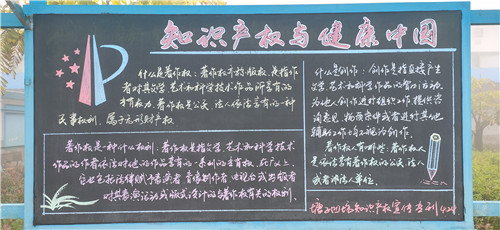 知识产权与健康中国
什么是著作权：著作权亦称版权，是指作
者对其文学、艺术和科学技术作品所享有的
专有权力。著作权是公民、法人依法享有的一种
民事权利，属于无形财产权
著作权是一种什么权利：著作权是指文学、艺术和科学技术
作品的作者依法对他的作品享有的一系列的专有权。在广义上，
它也包括法律赋予表演者、音像制作者、电视台或出版者
对其表演活动或版式设计的与著作权有关的权利。
什么是创作：创作是指直接产生
文学、艺术和科学作品的智力活动。
为他人创作进行组织工作，提供咨
询意见、物质条件或者进行其他
辅助工作，均不视为创作。
著作权人有哪些：著作权人
是依法享有著作权的公民、法人
或者非法人单位。
知识产权宣传专刊 4.24